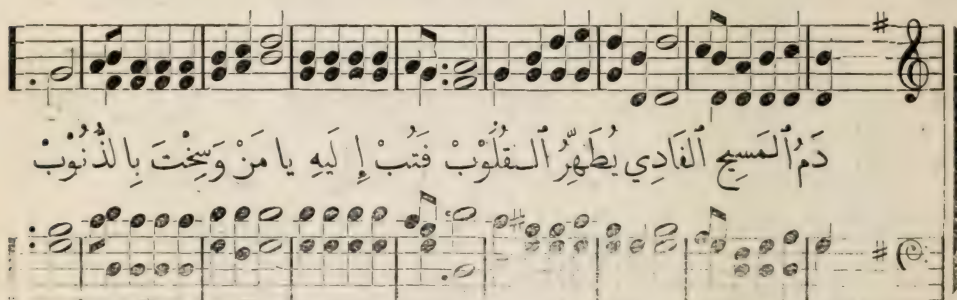 دَمُ ٱلْمَسِيحِ ٱلْفَادِي يُطَهِّرُ ٱلْقُلُوبْ فَتُبْ إِلَيهِ يا مَنْ وَسِخْتَ بِالذُّنُوبْ